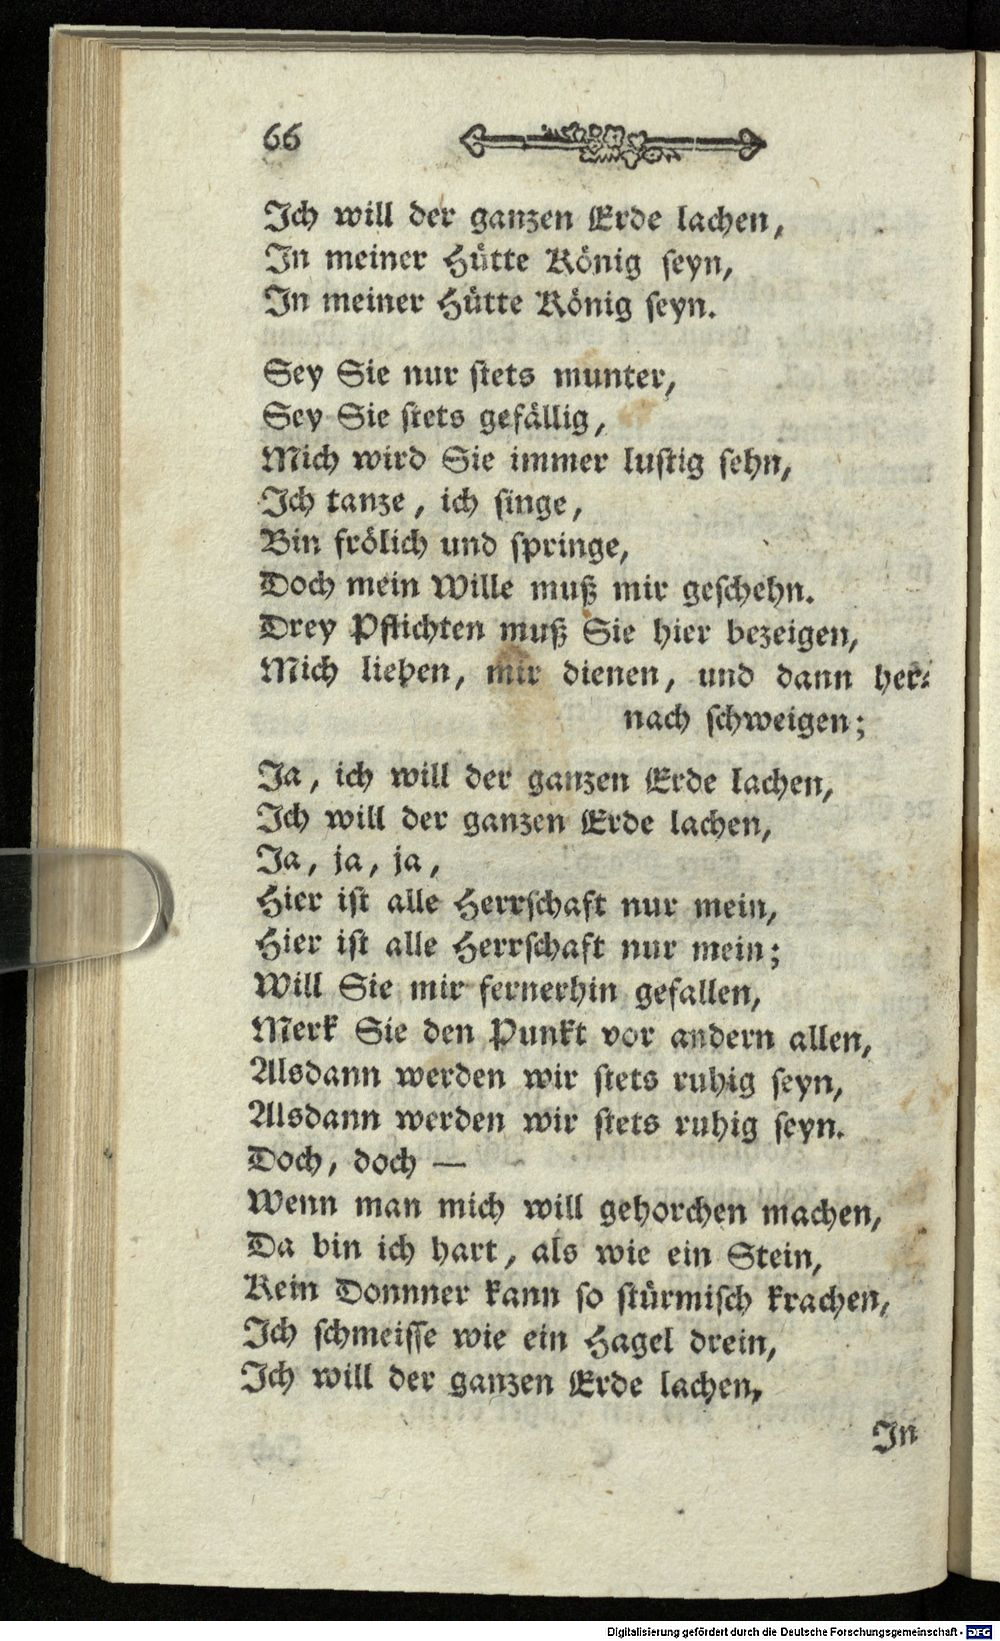 66
Ich will der ganzen Erde lachen,
In meiner Hütte König seyn,
In meiner Hütte König seyn.
Sey Sie nur stets munter,
Sey Sie stets gefällig,
Mich wird Sie immer lustig sehn,
Ich tanze, ich singe,
Bin frölich und springe,
Doch mein Wille muß mir geschehn.
Drey Pflichten muß Sie hier bezeigen,
Mich lieben, mir dienen, und dann her-
nach schweigen;
Ja, ich will der ganzen Erde lachen,
Ich will der ganzen Erde lachen,
Ja, ja, ja,
Hier ist alle Herrschaft nur mein,
Hier ist alle Herrschaft nur mein;
Will Sie mir fernerhin gefallen,
Merk Sie den Punkt vor andern allen,
Alsdann werden wir stets ruhig seyn,
Alsdann werden wir stets ruhig seyn.
Doch, doch —
Wenn man mich will gehorchen machen,
Da bin ich hart, als wie ein Stein,
Kein Donnner kann so stürmisch krachen,
Ich schmeisse wie ein Hagel drein,
Ich will der ganzen Erde lachen,
In
Digitalisierung gefördert durch die Deutsche Forschungsgemeinschaft - DFG